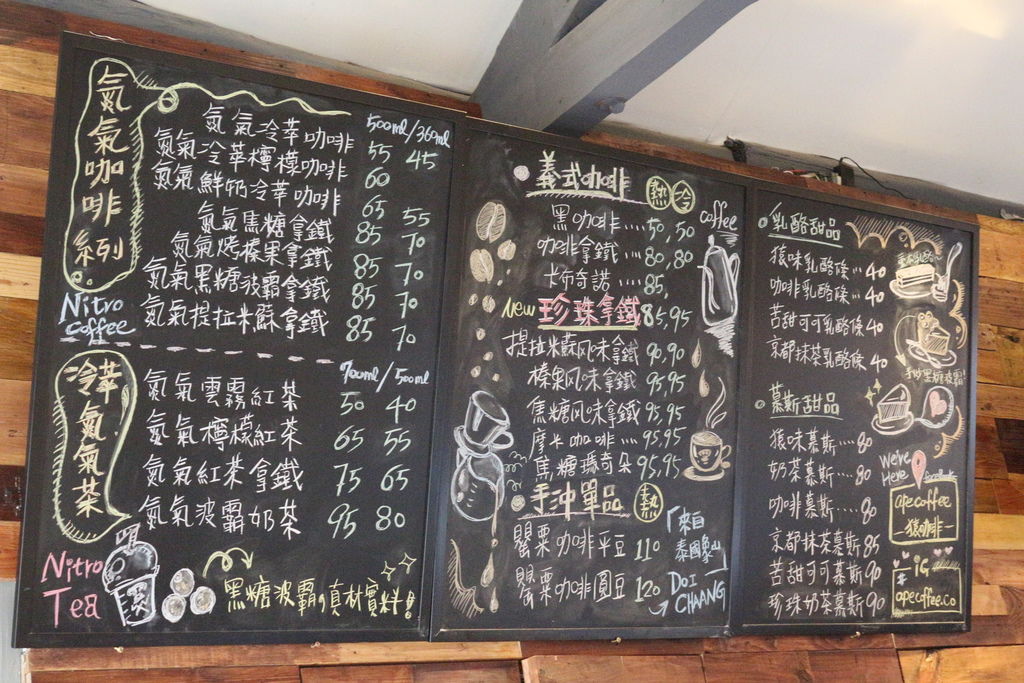 氮氣咖啡系列
Nitro
coffee
500ml/360ml
氮氣冷萃咖啡 55 45
氮氣冷萃檸檬咖啡 60
氮氣鮮奶冷萃咖啡 65
氮氣焦糖拿鐵 85 55
氮氣烤榛果拿鐵 85 70
氮氣黑糖波霸拿鐵 85 70
氮氣提拉米蘇拿鐵 85 70
70
冷萃氮氣茶
700ml/500ml
氮氣雲霧紅茶 50 40
氮氣檸檬紅茶 65 55
氮氣紅茶拿鐵 75 65
氮氣波霸奶茶 95 80
Nitro
Tea
黑糖波霸 真材實料!
義式咖啡 熱 冷
黑咖啡....50,50
咖啡拿鐵....80,80
卡布奇諾....85,
New 珍珠拿鐵 85,95
提拉米蘇风味拿鐵 90,90
榛果风味拿鐵 95,95
焦糖风味拿鐵 95,95
摩米咖啡... 95,95
焦糖瑪奇朵 95,95
手沖單品 熱
罌粟咖啡平豆 110
罌粟咖啡圓豆 120
「來自
泰國象山」
DOI
CHAANG
coffee
乳酪甜品
猿味乳酪條...40
咖啡乳酪條...40
苦甜可可乳酪條 40
京都抹茶乳酪條 40
慕斯甜品
猿味慕斯...80
奶茶慕斯...80
咖啡慕斯...80
京都抹茶慕斯 85
苦甜可可慕斯 90
珍珠奶茶慕斯 90
We've
Here
apecoffee
-猿咖啡-
# iG
apecoffee.co